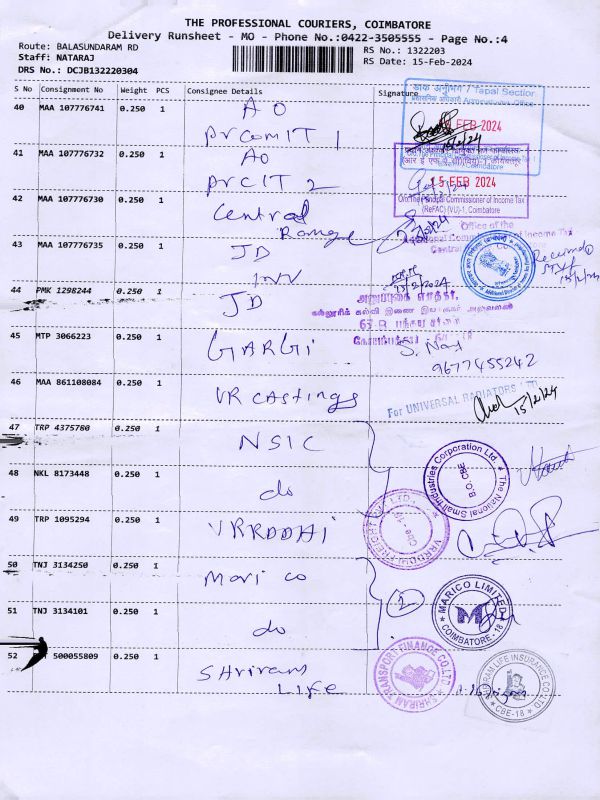 THE PROFESSIONAL COURIERS, COIMBATORE
Delivery Runsheet - MO - Phone No.:0422-3505555 - Page No.:4
Route: BALASUNDARAM RD
RS No.: 1322203
Staff: NATARAJ
RS Date: 15-Feb-2024
DRS No.: DCJB132220304
S No Consignment No Weight PCS Consignee Details Signature
डाक अनुभाग / Tapal Section
40 MAA 107776741 0.250 1 AO
PrComIT 1
FEB 2024
41 MAA 107776732 0.250 1 AO
PrCIT 2
15 FEB 2024
O/o.The Principal Commissioner of Income Tax
(ReFAC) (VU)-1, Coimbatore
42 MAA 107776730 0.250 1 Central
Range
Office of the
Commissioner of Income Tax
Central
43 MAA 107776735 0.250 1 JD
INV
Received
15/2/2024
44 PMK 1298244 0.250 1 JD
கல்லூரிக் கல்வி இணை இயக்குநர் அலுவலகம்
45 MTP 3066223 0.250 1 GARGI
S. Nat
9677455242
46 MAA 861108084 0.250 1 VR castings
For UNIVERSAL RADIATORS LTD
15/2/24
47 TRP 4375780 0.250 1 NSIC
The National Small Industries Corporation Ltd.
B.O.CBE
48 NKL 8173448 0.250 1 do
49 TRP 1095294 0.250 1 VRRDDHI
50 TNJ 3134250 0.250 1 Marico
2
MARICO LIMITED
COIMBATORE - 18
51 TNJ 3134101 0.250 1 do
52 500055809 0.250 1 SHriram
LIFE
SHRIRAM TRANSPORT FINANCE CO LTD
SHRIRAM LIFE INSURANCE CO LTD
CBE-18